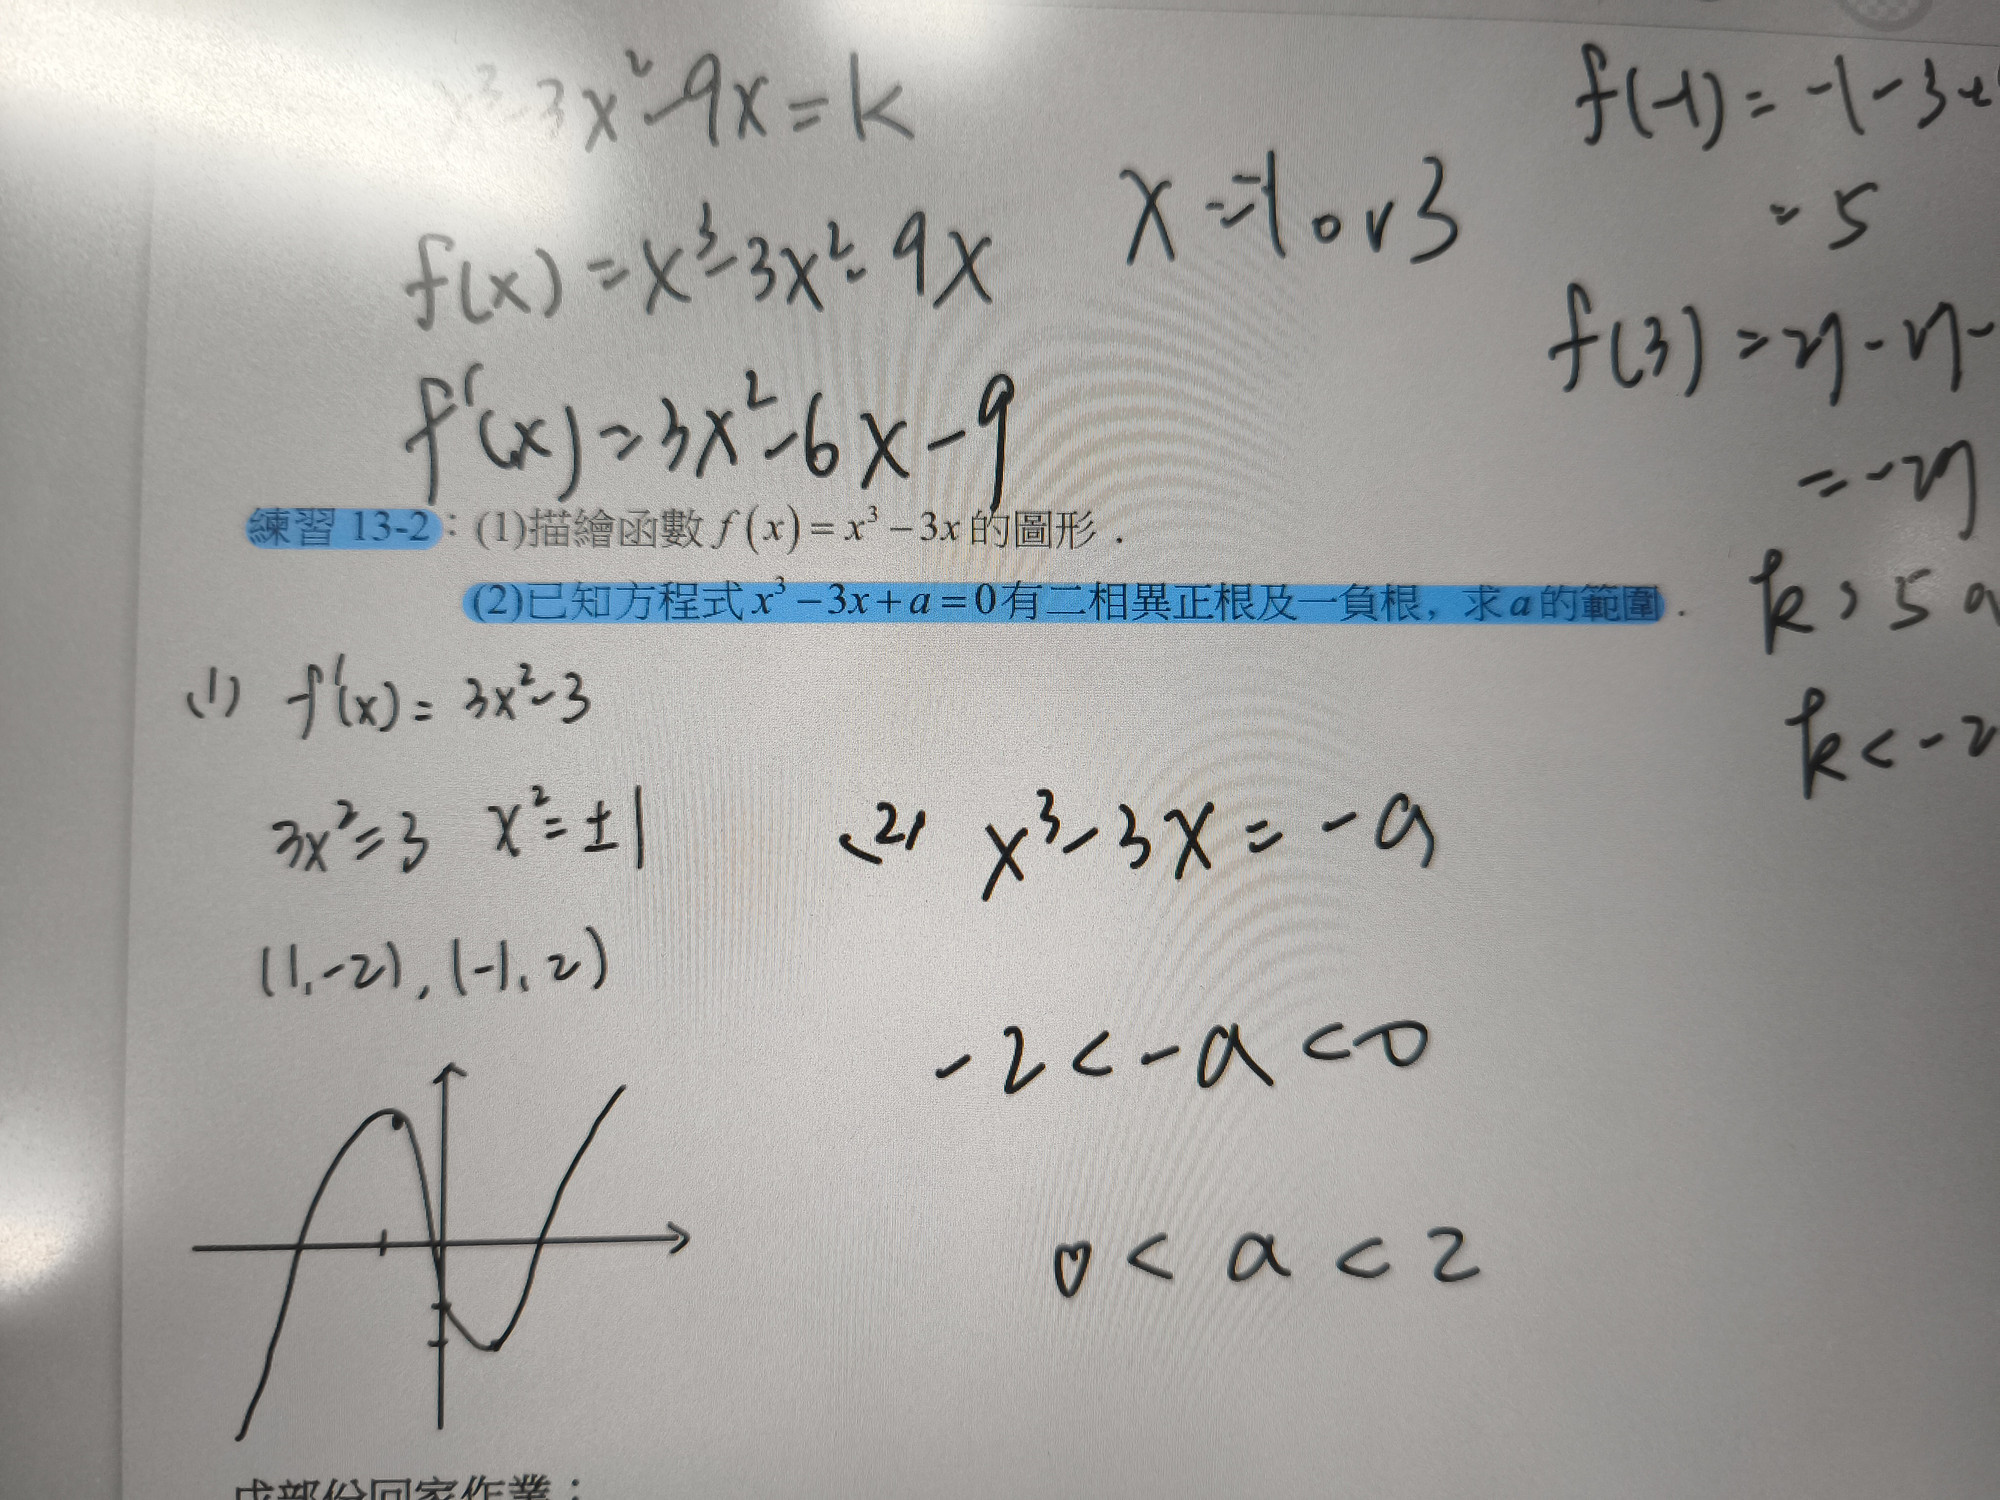 x³-3x²-9x=k
f(x)=x³-3x²-9x
f'(x)=3x²-6x-9
x=-1 or 3
f(-1)=-1-3+
=5
f(3)=27-27-
=-27
k>5
k<-2
練習 13-2：(1)描繪函數 f(x)=x³-3x 的圖形．
(2)已知方程式 x³-3x+a=0有二相異正根及一負根，求a的範圍．
(1) f'(x)=3x²-3
3x²=3 x²=±1
(1,-2),(-1,2)
(2) x³-3x=-a
-2<-a<0
0<a<2
成部份回家作業：